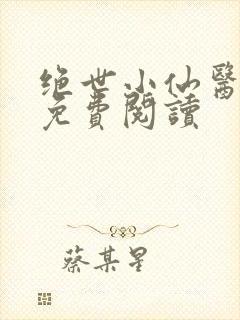 绝世小仙醫
免費閱讀
蔡某星